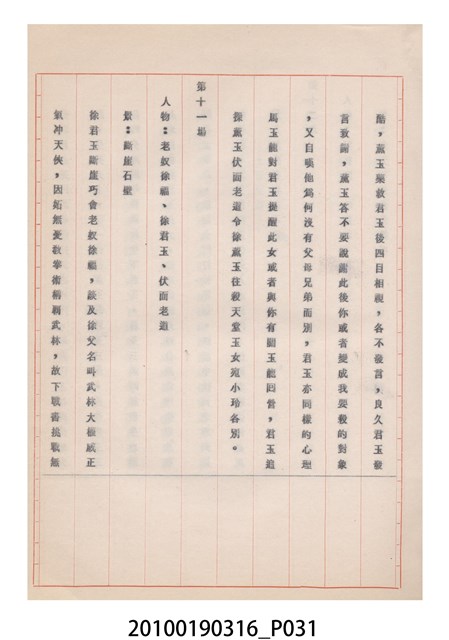 酷，薰玉樂救君玉後四目相視，各不發言，良久君玉發
言致謝，薰玉答不要說謝此後你或者變成我要殺的對象
，又自嘆他為何沒有父母兄弟而別，君玉亦同樣的心理
馬玉龍對君玉提醒此女或者與你有關玉龍回營，君玉追
探薰玉伏而老道令徐薰玉往殺天堂玉女宛小玲各別。
第十一場
人物：老奴徐福、徐君玉、伏而老道
景：斷崖石壁
徐君玉斷崖巧會老奴徐福，談及徐父名叫武林大俠威正
氣冲天俠，因妬無憂教掌術稱霸武林，故下戰書挑戰無
20100190316_P031